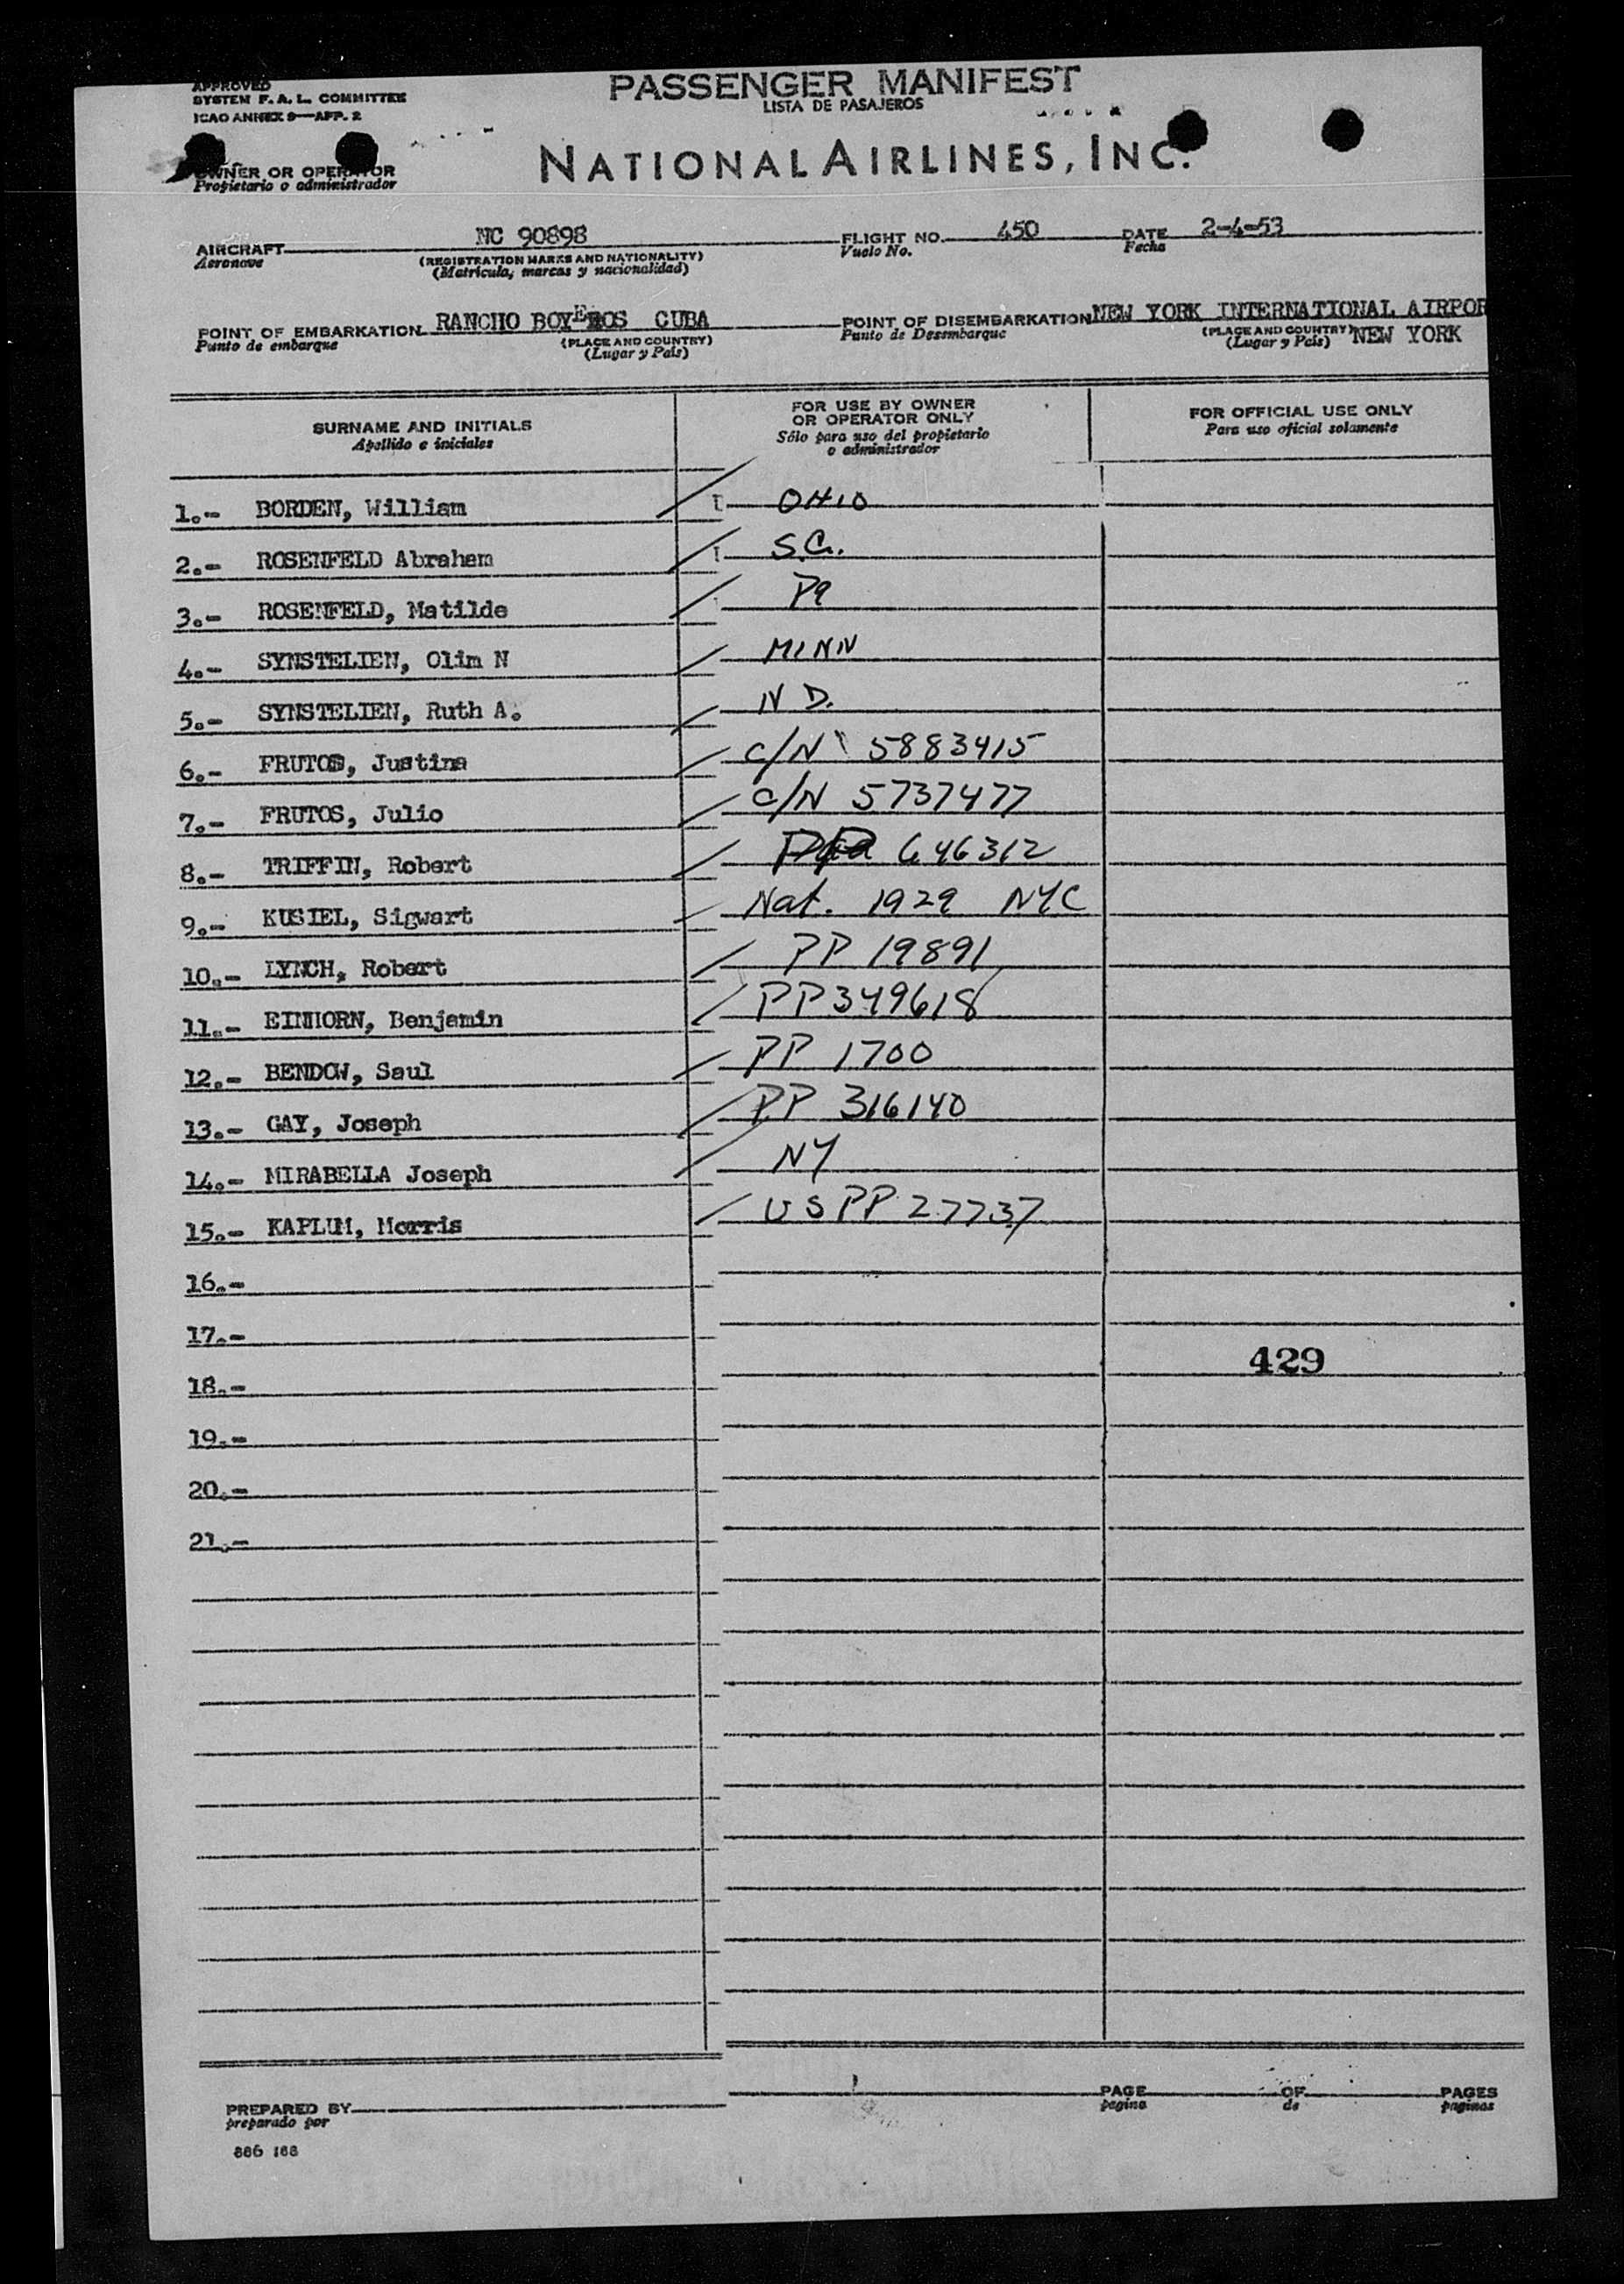 APPROVED
SYSTEM F. A. L. COMMITTEE
ICAO ANNEX 9—APP. 2
PASSENGER MANIFEST
LISTA DE PASAJEROS
NATIONAL AIRLINES, INC.
OWNER OR OPERATOR
Propietario o administrador
AIRCRAFT NC 90898 FLIGHT NO. 450 DATE 2-4-53
Aeronave (REGISTRATION MARKS AND NATIONALITY) Vuelo No. Fecha
(Matrícula, marcas y nacionalidad)
POINT OF EMBARKATION RANCHO BOYEROS CUBA POINT OF DISEMBARKATION NEW YORK INTERNATIONAL AIRPOR
Punto de embarque (PLACE AND COUNTRY) Punto de Desembarque (PLACE AND COUNTRY) NEW YORK
(Lugar y País) (Lugar y País)
SURNAME AND INITIALS
Apellido e iniciales
FOR USE BY OWNER
OR OPERATOR ONLY
Sólo para uso del propietario
o administrador
FOR OFFICIAL USE ONLY
Para uso oficial solamente
1.- BORDEN, William OHIO
2.- ROSENFELD Abraham S.C.
3.- ROSENFELD, Matilde Pa
4.- SYNSTELIEN, Olim N MINN
5.- SYNSTELIEN, Ruth A. N D.
6.- FRUTOS, Justina C/N 5883415
7.- FRUTOS, Julio C/N 5737477
8.- TRIFFIN, Robert 646312
9.- KUSIEL, Sigwart Nat. 1929 NYC
10.- LYNCH, Robert PP 19891
11.- EINHORN, Benjamin PP 349618
12.- BENDOW, Saul PP 1700
13.- GAY, Joseph PP 316140
14.- MIRABELLA Joseph NY
15.- KAPLUM, Morris US PP 27737
16.-
17.-
429
18.-
19.-
20.-
21.-
PREPARED BY PAGE OF PAGES
preparado por página de páginas
886 188